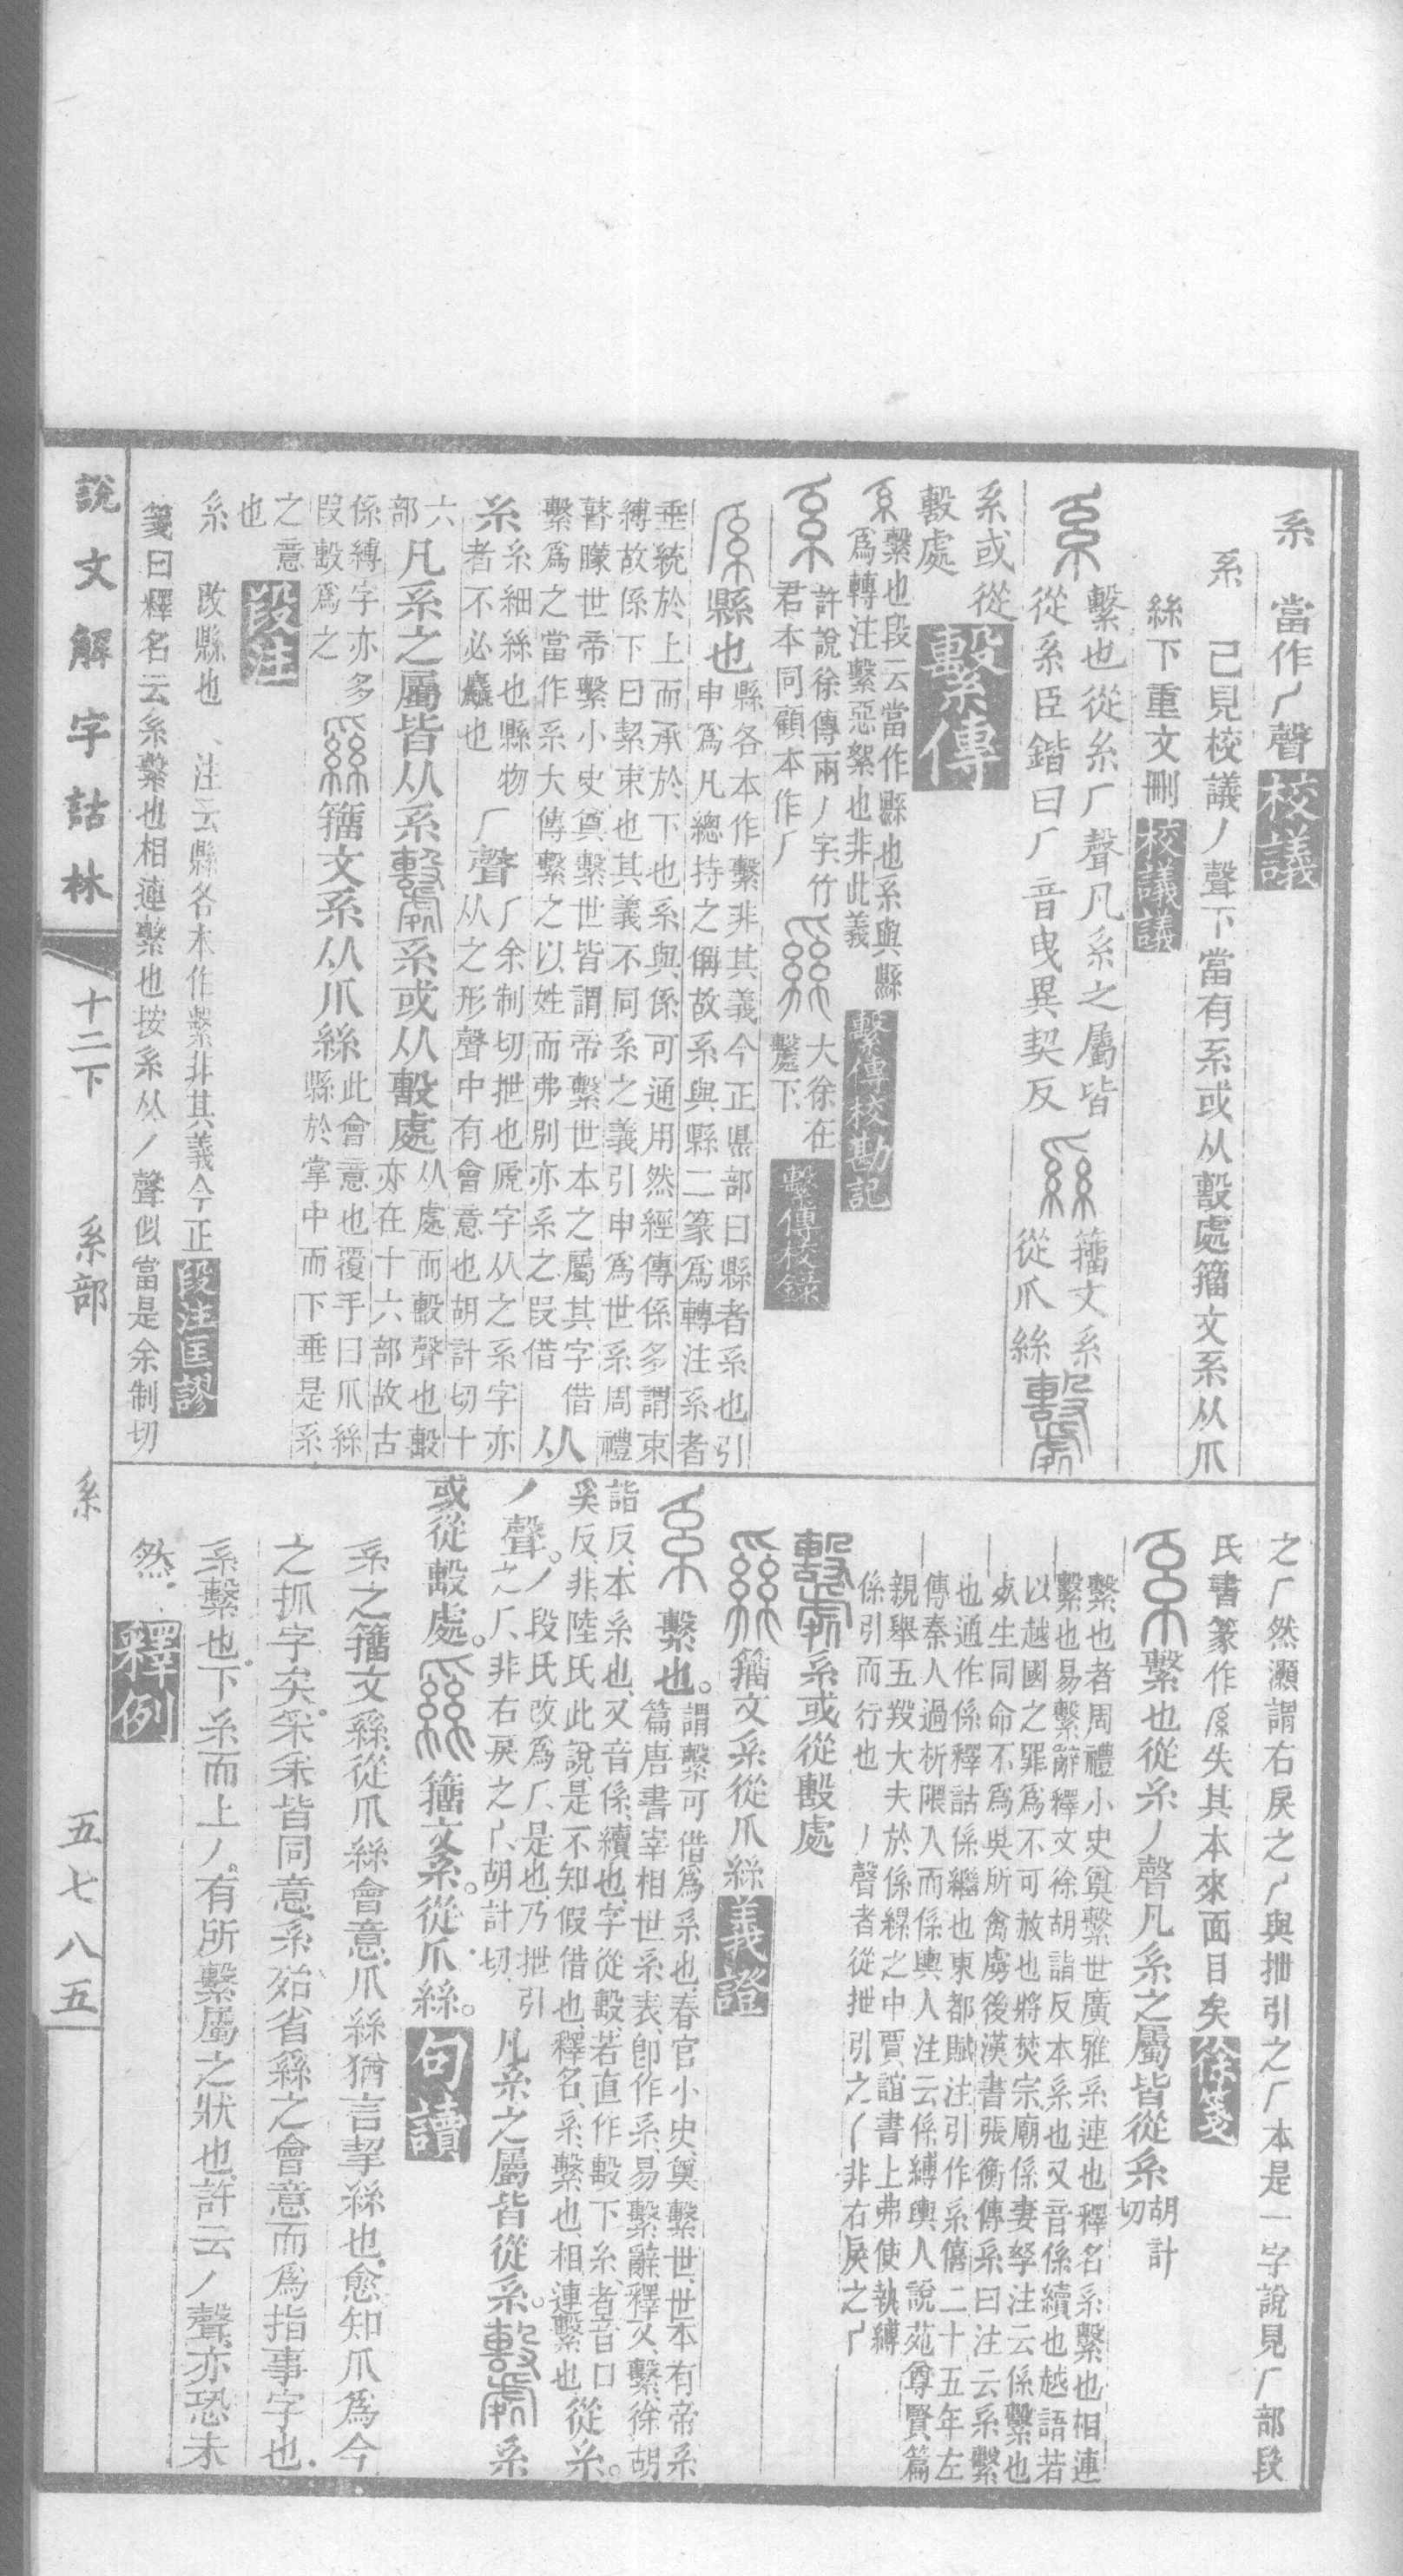 系　當作𠂆聲校議
系　已見校議丿聲下當有系或从毄處籀文系从爪
絲下重文刪校議議
系　繫也從糸𠂆聲凡系之屬皆
從系臣鍇曰𠂆音曳異契反
籀文系
從爪絲
系或從
毄處　繫傳
系　繫也段云當作縣也系與縣
爲轉注繫惡絮也非此義　繫傳校勘記
系　許說徐傳兩丿字竹
君本同顧本作𠂆
大徐在
繫下　繫傳校錄
系　縣也　縣各本作繫非其義今正県部曰縣者系也引
申爲凡總持之偁故系與縣二篆爲轉注系者
垂統於上而承於下也系與係可通用然經傳係多謂束
縛故係下曰絜束也其義不同系之義引申爲世系周禮
瞽矇世帝繫小史奠繫世皆謂帝繫世本之屬其字借
繫爲之當作系大傳繫之以姓而弗別亦系之叚借　从
糸　糸細絲也縣物
者不必麤也　𠂆聲　𠂆余制切抴也虒字从之系字亦
从之形聲中有會意也胡計切十
六
部　凡系之屬皆从系　系或从毄處　从處而毄聲也毄
亦在十六部故古
係縛字亦多
叚毄爲之　籀文系从爪絲　此會意也覆手曰爪絲
縣於掌中而下垂是系
之意
也　段注
系　改縣也、注云縣各本作繫非其義今正段注匡謬
箋曰釋名云系繫也相連繫也按系从丿聲似當是余制切
之𠂆然灝謂右戾之丿與抴引之𠂆本是一字說見𠂆部段
氏書篆作系失其本來面目矣徐箋
系　繫也從糸丿聲凡系之屬皆從系　胡計
切
繫也者周禮小史奠繫世廣雅系連也釋名系繫也相連
繫也易繫辭釋文徐胡詣反本系也又音係續也越語若
以越國之罪爲不可赦也將焚宗廟係妻孥注云係繫也
夊生同命不爲吳所禽虜後漢書張衡傳系曰注云系繫
也通作係釋詁係繼也東都賦注引作系僖二十五年左
傳秦人過析隈入而係輿人注云係縛輿人說苑尊賢篇
親舉五羖大夫於係縲之中賈誼書上弗使執縛
係引而行也　丿聲者從抴引之𠂆非右戾之丿
系或從毄處
籀文系從爪絲　義證
系　繫也。　謂繫可借爲系也、春官小史、奠繫世、世本有帝系
篇、唐書宰相世系表、卽作系、易繫辭釋文、繫、徐胡
詣反、本系也、又音係、續也、字從毄、若直作毄下糸、者音口
奚反、非陸氏此說、是不知假借也、釋名、系、繫也、相連繫也、從糸。
丿聲。　丿、段氏改爲𠂆、是也、乃抴引
之𠂆、非右戾之丿、胡計切、凡系之屬皆從系。　系
或從毄處。　籀文系。從爪絲。　句讀
系之籀文𦃟、從爪絲會意、爪絲猶言挐絲也、愈知爪爲今
之抓字矣。采、釆皆同意、系殆省𦃟之會意而爲指事字也、
系、繫也。下糸而上丿。有所繫屬之狀也、許云丿聲、亦恐未
然、　釋例
說文解字詁林　十二下　系部　系　五七八五